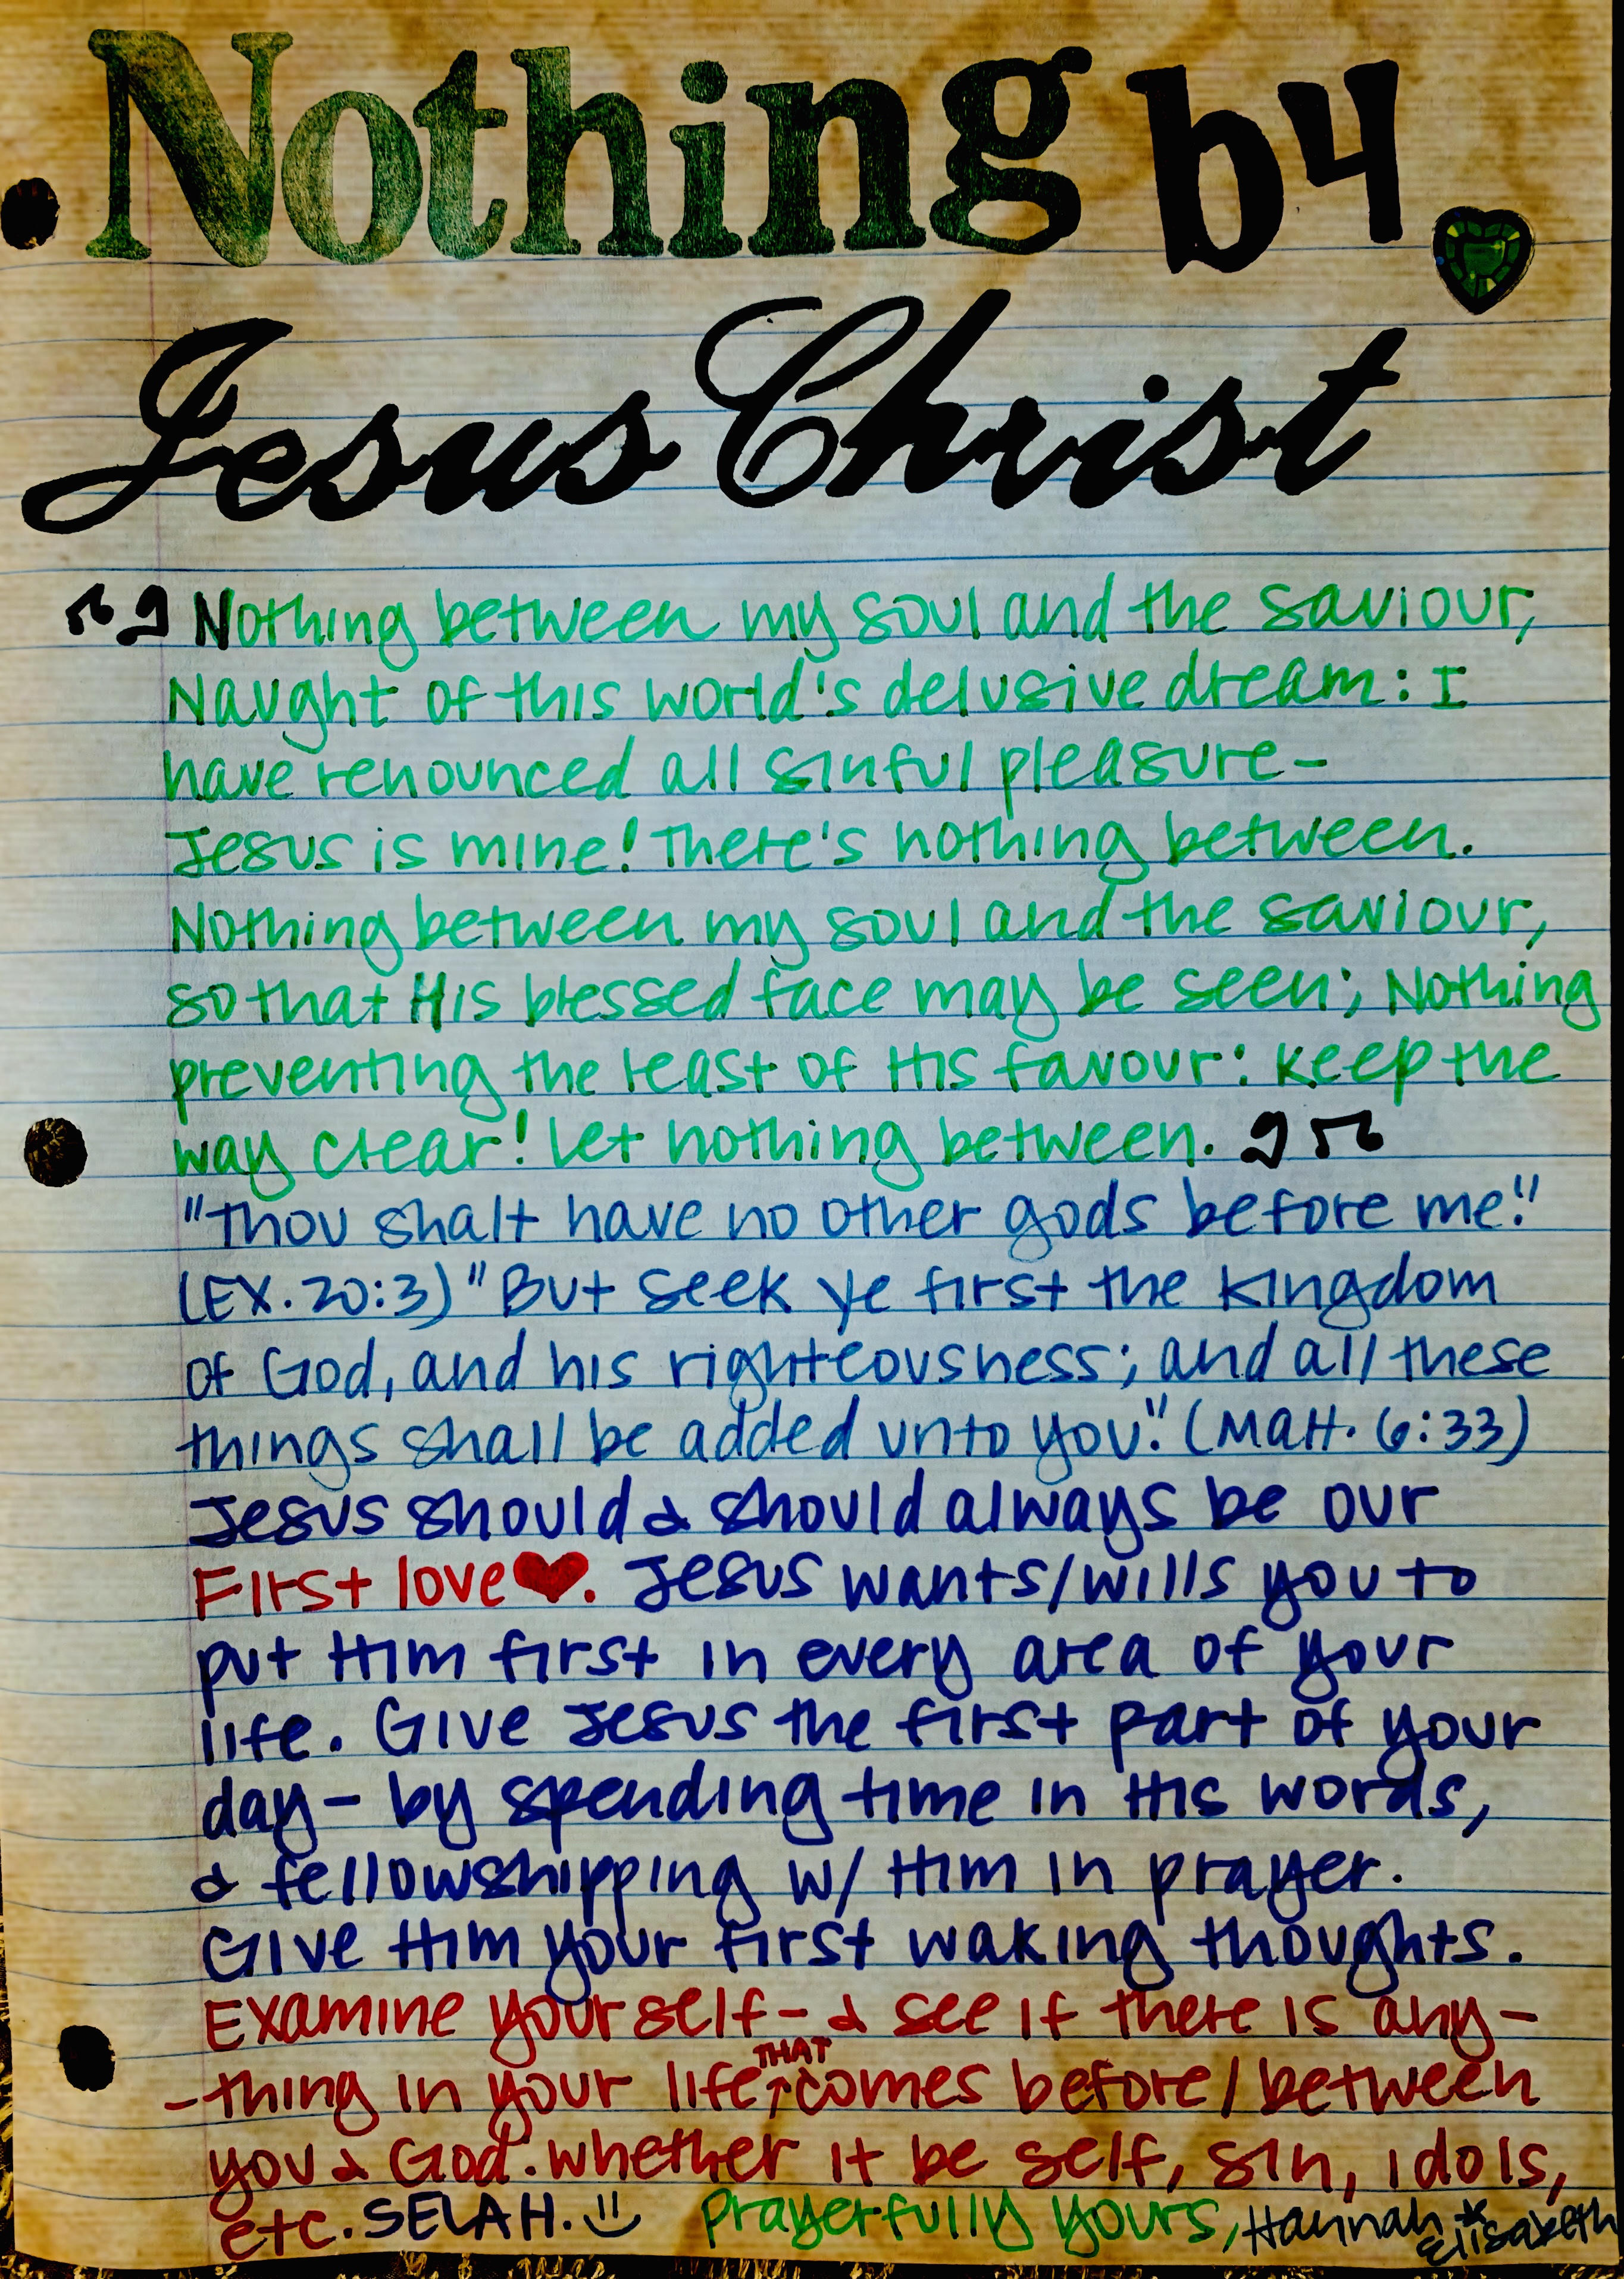 Nothing b4
Jesus Christ
Nothing between my soul and the saviour,
Naught of this world's delusive dream: I
have renounced all sinful pleasure-
Jesus is mine! There's nothing between.
Nothing between my soul and the saviour,
so that His blessed face may be seen; Nothing
preventing the least of His favour: keep the
way clear! Let nothing between.
"Thou shalt have no other gods before me."
(EX. 20:3) "But seek ye first the kingdom
of God, and his righteousness; and all these
things shall be added unto you." (Matt. 6:33)
Jesus should & should always be our
First love❤. Jesus wants/wills you to
put Him first in every area of your
life. Give Jesus the first part of your
day- by spending time in His words,
& fellowshipping w/ Him in prayer.
Give Him your first waking thoughts.
Examine yourself- & see if there is any-
-thing in your life THAT comes before/between
you & God. whether it be self, sin, idols,
etc. SELAH. Prayerfully yours, Hannah Elisabeth